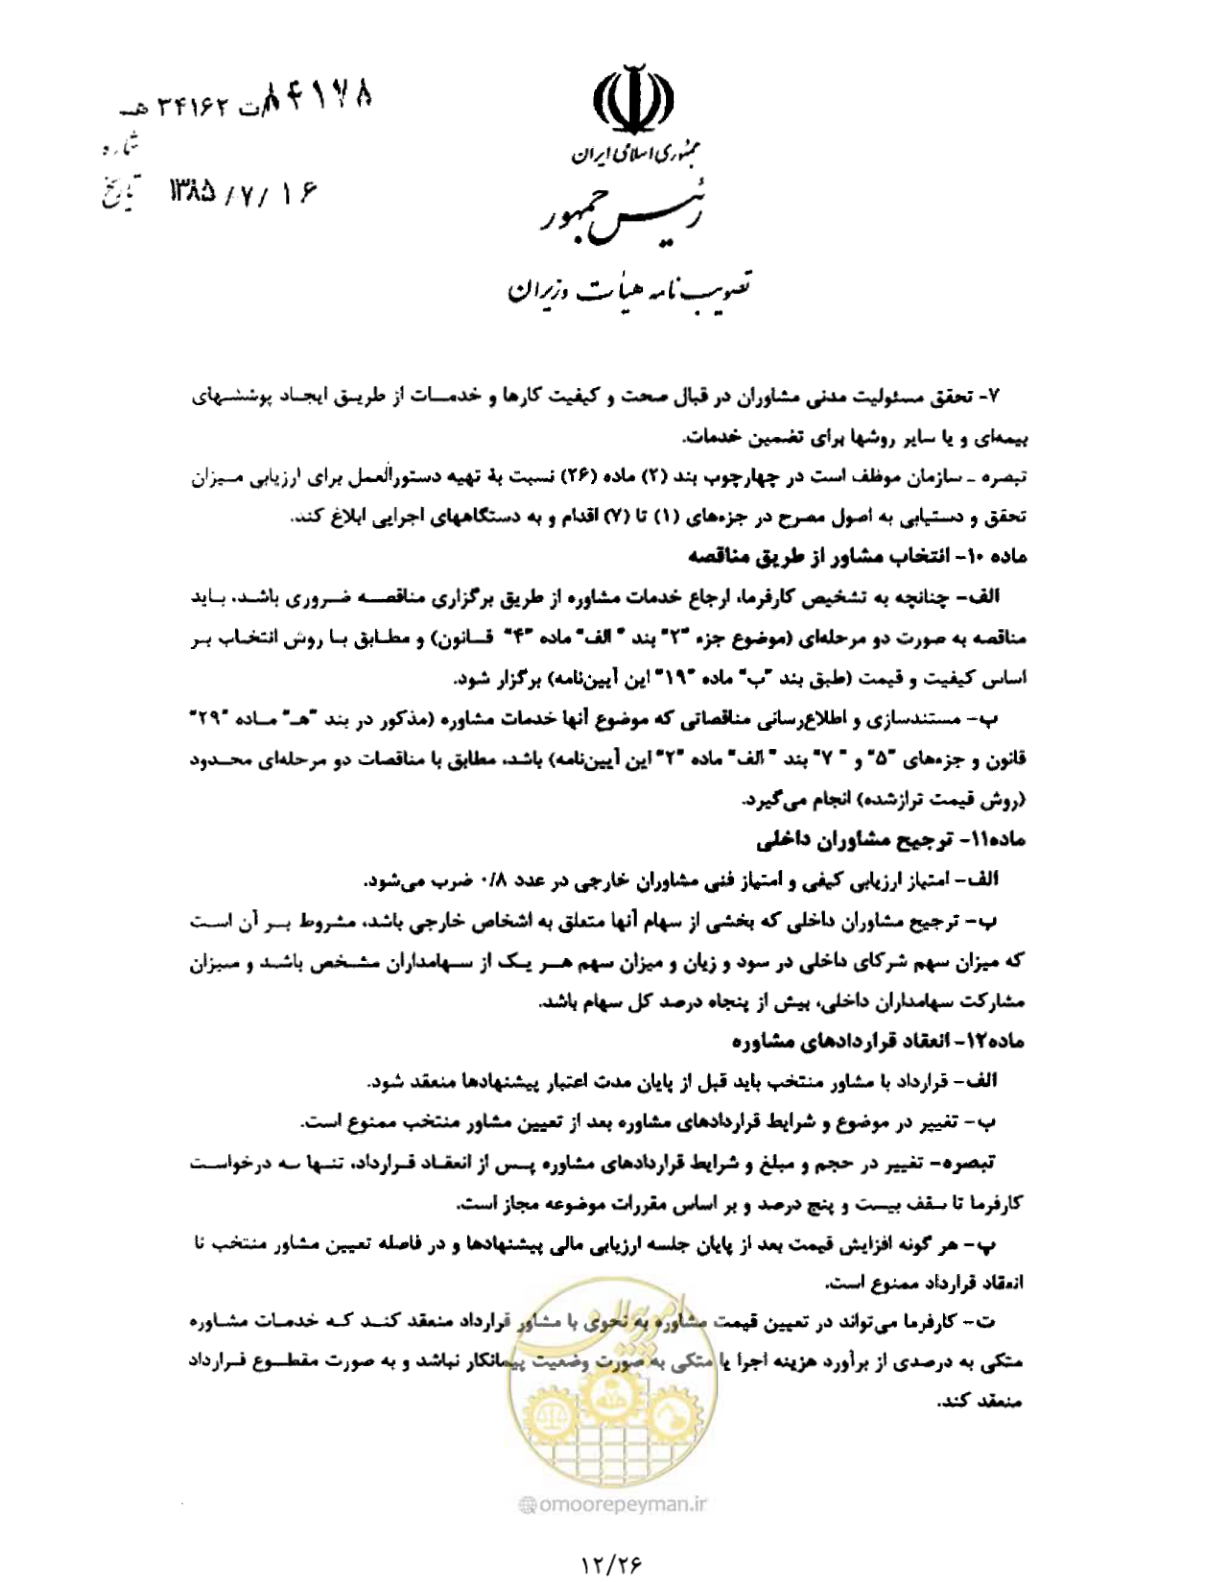 ۸۴۱۷۸/ت ۳۴۱۶۲ هـ
شماره
۱۳۸۵/۷/۱۶
تاریخ
جمهوری اسلامی ایران
رئیس جمهور
تصویب نامه هیأت وزیران
۷- تحقق مسئولیت مدنی مشاوران در قبال صحت و کیفیت کارها و خدمات از طریق ایجاد پوششهای
بیمه‌ای و یا سایر روشها برای تضمین خدمات.
تبصره ـ سازمان موظف است در چهارچوب بند (۲) ماده (۲۶) نسبت به تهیه دستورالعمل برای ارزیابی میزان
تحقق و دستیابی به اصول مصرح در جزءهای (۱) تا (۷) اقدام و به دستگاههای اجرایی ابلاغ کند.
ماده ۱۰- انتخاب مشاور از طریق مناقصه
الف- چنانچه به تشخیص کارفرما، ارجاع خدمات مشاوره از طریق برگزاری مناقصه ضروری باشد، باید
مناقصه به صورت دو مرحله‌ای (موضوع جزء "۲" بند "الف" ماده "۴" قانون) و مطابق با روش انتخاب بر
اساس کیفیت و قیمت (طبق بند "ب" ماده "۱۹" این آیین‌نامه) برگزار شود.
ب- مستندسازی و اطلاع‌رسانی مناقصاتی که موضوع آنها خدمات مشاوره (مذکور در بند "هـ" ماده "۲۹"
قانون و جزءهای "۵" و "۷" بند "الف" ماده "۲" این آیین‌نامه) باشد، مطابق با مناقصات دو مرحله‌ای محدود
(روش قیمت ترازشده) انجام می‌گیرد.
ماده۱۱- ترجیح مشاوران داخلی
الف- امتیاز ارزیابی کیفی و امتیاز فنی مشاوران خارجی در عدد ۰/۸ ضرب می‌شود.
ب- ترجیح مشاوران داخلی که بخشی از سهام آنها متعلق به اشخاص خارجی باشد، مشروط بر آن است
که میزان سهم شرکای داخلی در سود و زیان و میزان سهم هر یک از سهامداران مشخص باشد و میزان
مشارکت سهامداران داخلی، بیش از پنجاه درصد کل سهام باشد.
ماده۱۲- انعقاد قراردادهای مشاوره
الف- قرارداد با مشاور منتخب باید قبل از پایان مدت اعتبار پیشنهادها منعقد شود.
ب- تغییر در موضوع و شرایط قراردادهای مشاوره بعد از تعیین مشاور منتخب ممنوع است.
تبصره- تغییر در حجم و مبلغ و شرایط قراردادهای مشاوره پس از انعقاد قرارداد، تنها به درخواست
کارفرما تا سقف بیست و پنج درصد و بر اساس مقررات موضوعه مجاز است.
پ- هر گونه افزایش قیمت بعد از پایان جلسه ارزیابی مالی پیشنهادها و در فاصله تعیین مشاور منتخب تا
انعقاد قرارداد ممنوع است.
ت- کارفرما می‌تواند در تعیین قیمت مشاوره به نحوی با مشاور قرارداد منعقد کند که خدمات مشاوره
متکی به درصدی از برآورد هزینه اجرا یا متکی به صورت وضعیت پیمانکار نباشد و به صورت مقطوع قرارداد
منعقد کند.
امور پیمان
@omoorepeyman.ir
۱۲/۲۶